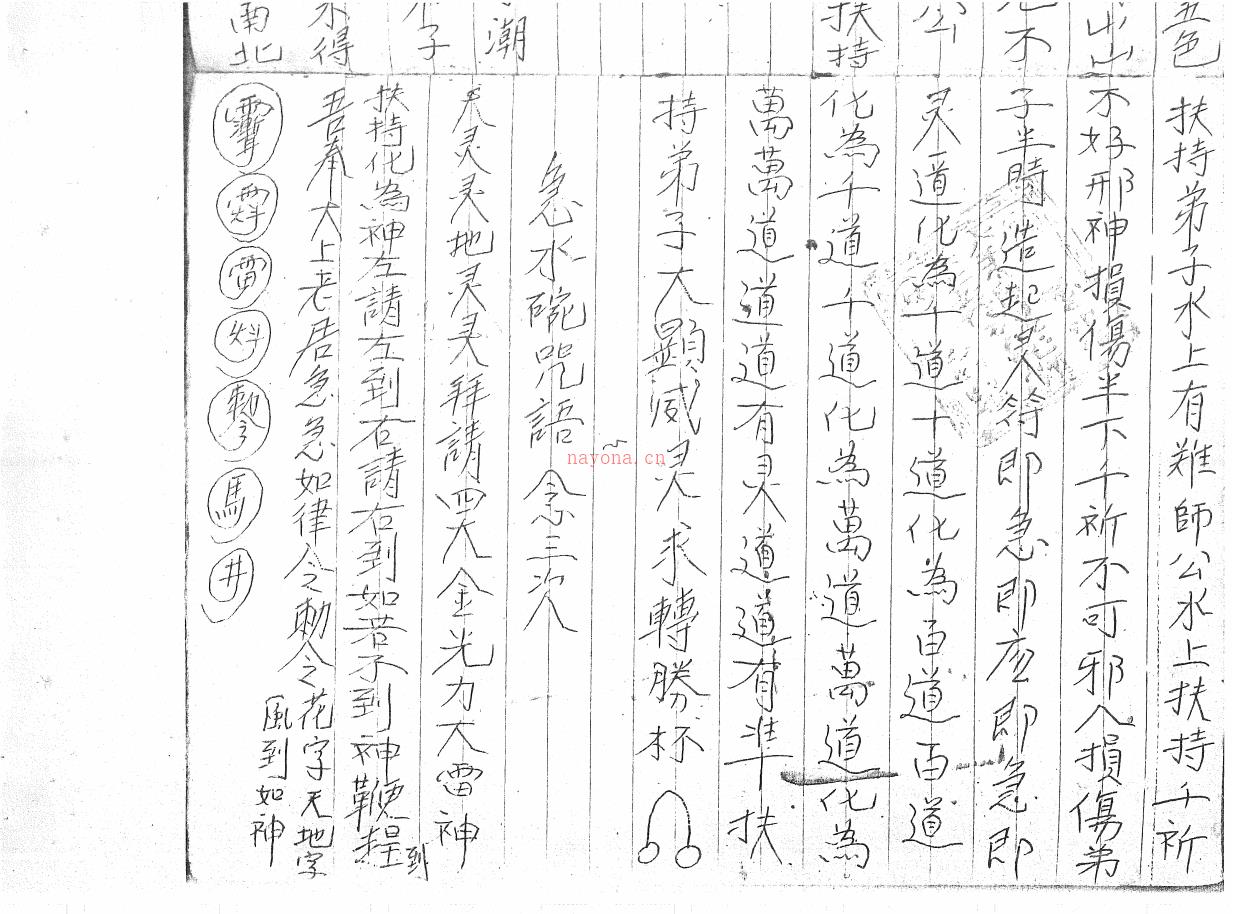 五色
出山
不
扶持
潮
子
不得
南北
扶持弟子水上有难師公水上扶持千祈
不好邪神損傷半下千祈不可邪入損傷弟
子半時造起灵符即急即应即急即
灵一道化為十道十道化為百道百道
化為千道千道化為萬道萬道化為
萬萬道道道有灵道道有準扶
持弟子大顯威灵求轉勝杯
急水碗咒語念三次
天灵灵地灵灵拜請四大金光力大雷神
扶持化為神左請左到右請右到如若不到神鞭趕到
吾奉太上老君急急如律令之勅令花字天地字
風到如神
雷
馬
井
nayona.cn